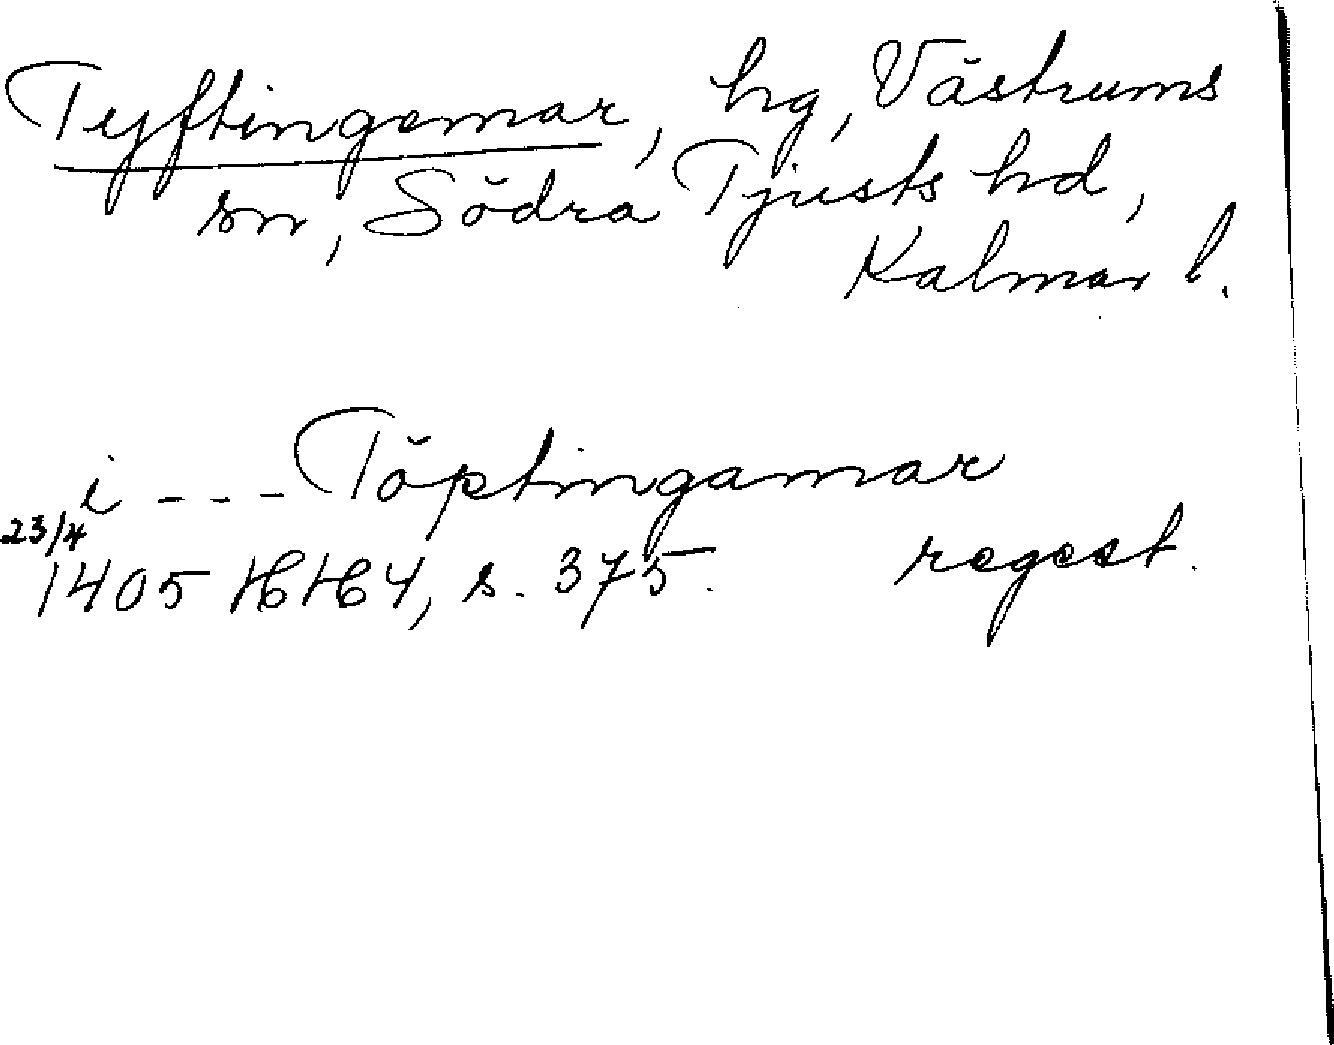 Tyftingemar, hg, Västrums
sn, Södra Tjusts hd,
Kalmar l.
i --- Töptingamar
23/4
1405 HH 4, s. 375. regest.